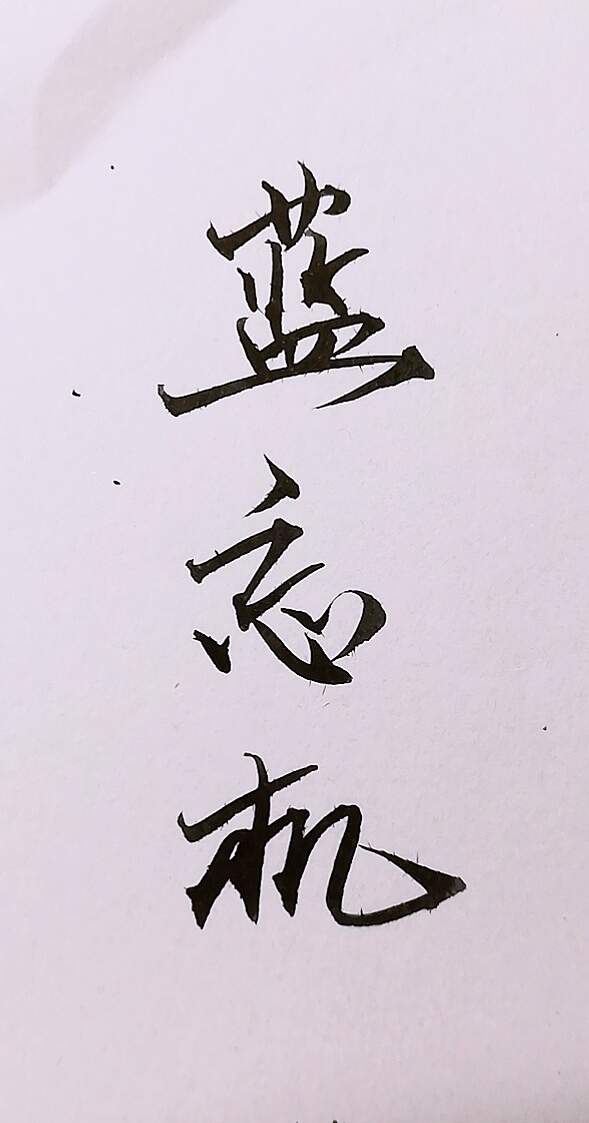 蓝忘机